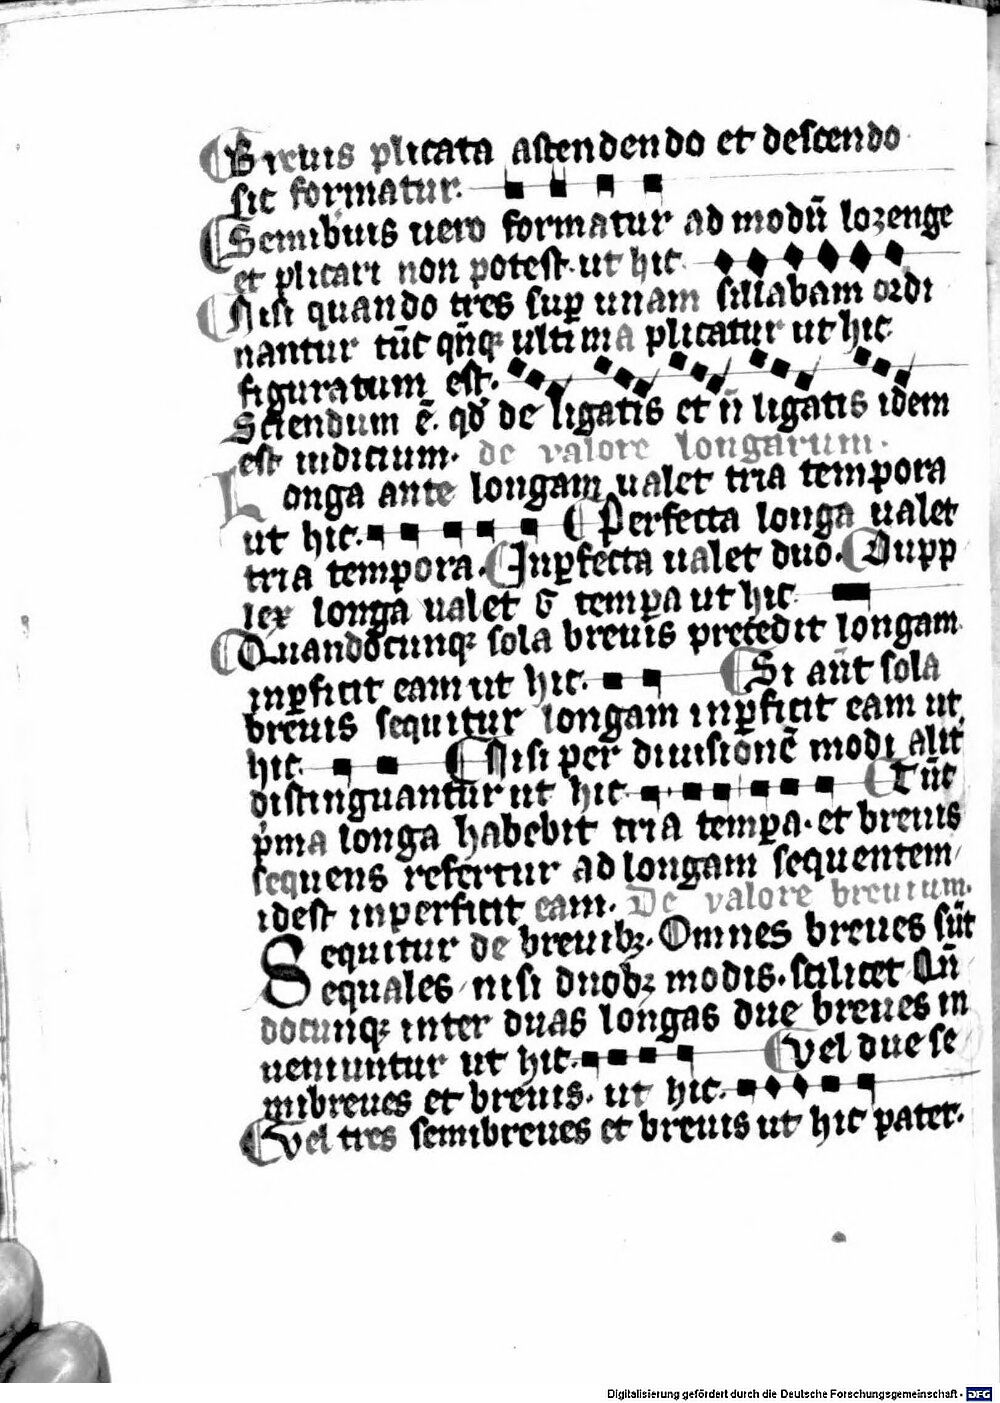 Breuis plicata ascendendo et descendo
sic formatur.
Semibuis uero formatur ad modū lozenge
et plicari non potest. ut hic
Nisi quando tres sup unam sillabam ordi
nantur tūc qn̄qꝫ ultima plicatur ut hic
figuratum est.
Sciendum ē. qd de ligatis et n̄ ligatis idem
est iudicium. de valore longarum.
Longa ante longam ualet tria tempora
ut hic. Perfecta longa ualet
tria tempora. Inꝑfecta ualet duo. Dupp
lex longa ualet 6 temꝑa ut hic
Quandocunqꝫ sola breuis precedit longam
inꝑficit eam ut hic. Si aūt sola
breuis sequitur longam inꝑficit eam ut
hic. Nisi per diuisionē modi alit
distinguantur ut hic Tūc
pͥma longa habebit tria temꝑa. et breuis
sequens refertur ad longam sequentem
idest inperficit eam. De valore breuium.
Sequitur de breuibꝫ. Omnes breues sūt
equales nisi duobꝫ modis. scilicet Qn̄
docunqꝫ inter duas longas due breues in
ueniuntur ut hic. Vel due se
mibreues et breuis. ut hic.
Vel tres semibreues et breuis ut hic patet.
Digitalisierung gefördert durch die Deutsche Forschungsgemeinschaft - DFG